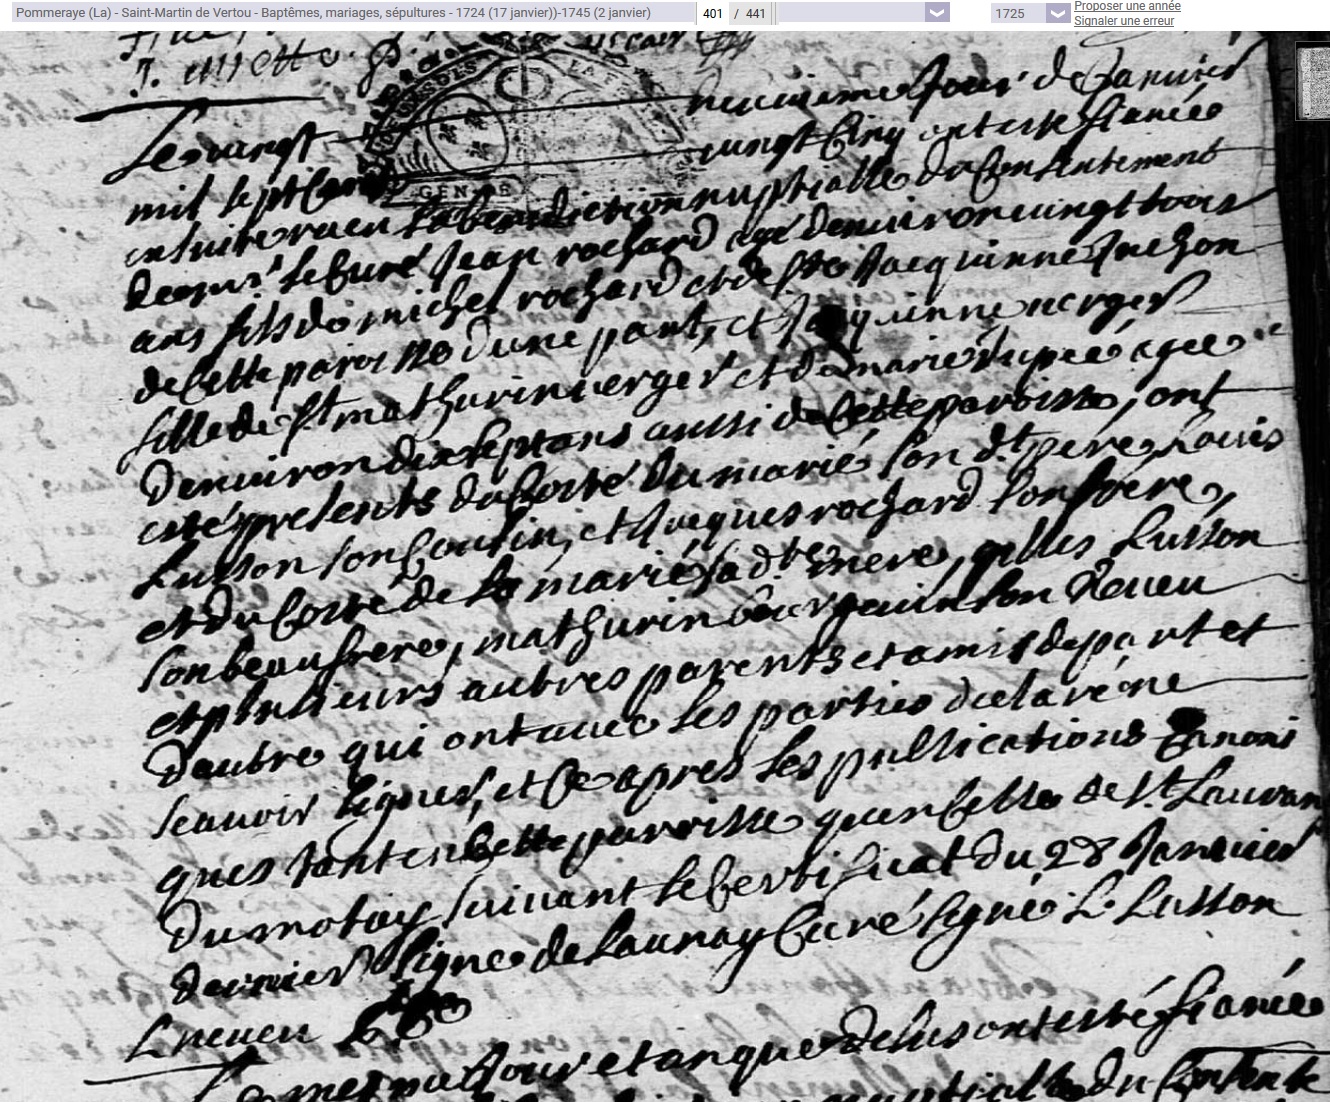 Pommeraye (La) - Saint-Martin de Vertou - Baptêmes, mariages, sépultures - 1724 (17 janvier))-1745 (2 janvier) 401 / 441 1725 Proposer une année
Signaler une erreur
GÉNÉR
Le vingt neuvieme jour de Janvier
mil sept cent vingt cinq ont esté fiancés
ensuite receu la benediction nuptialle du Consentement
de mr le curé Jean rochard agé denviron vingt trois
ans fils de michel rochard et de Jacquinne
de cette paroisse dune part, et Jacquinne verger
fille de ft mathurin verger et de marie agee
denviron dix sept ans aussi de cette paroisse, ont
esté presents du costé du marié son dt pere Louis
Lusson son Cousin, et Jacques rochard son frere,
et du costé de la mariée sa dte mere, gilles Lusson
son beau frere, mathurin son neveu
et plusieurs autres parents et amis de part et
dautre qui ont avec les parties declaré ne
scavoir signer, et ce apres les publications
ques tant en cette paroisse quen celle de St Lauran
du motay suivant le certificat du 28 Janvier
dernier signe delaunay Curé signé L. Lusson
Lneveu
Le mesme Jour et an que dessus ont esté fiancés
nuptialle du Consente